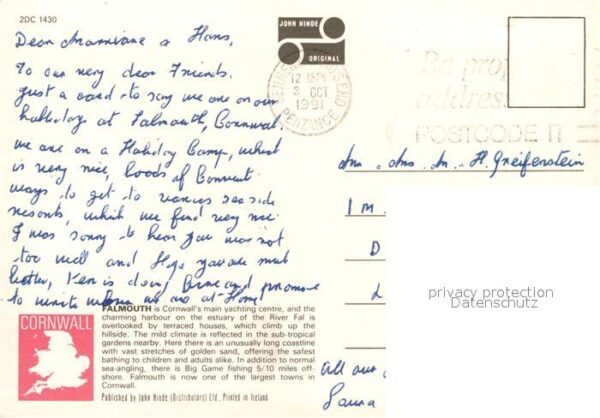 2DC 1430
JOHN HINDE
ORIGINAL
Dear Marriane & Hans,
To our very dear Friends.
Just a card to say we are on our
holidays at Falmouth, Cornwall
we are on a Holiday Camp, which
is very nice, loads of
ways to get to various seaside
resorts, which we find very nice
I was sorry to hear you was not
too well and Hope you are much
better, Ken is doing fine and promise
to write when we are at Home
12 15PM
3 OCT
1991
PENZANCE
Be prop
address
POSTCODE IT
H. Greifenstein
I M
D
L
privacy protection
Datenschutz
All our
CORNWALL
FALMOUTH is Cornwall's main yachting centre, and the
charming harbour on the estuary of the River Fal is
overlooked by terraced houses, which climb up the
hillside. The mild climate is reflected in the sub-tropical
gardens nearby. Here there is an unusually long coastline
with vast stretches of golden sand, offering the safest
bathing to children and adults alike. In addition to normal
sea-angling, there is Big Game fishing 5/10 miles off-
shore. Falmouth is now one of the largest towns in
Cornwall.
Published by John Hinde (Distributors) Ltd. Printed in Ireland.